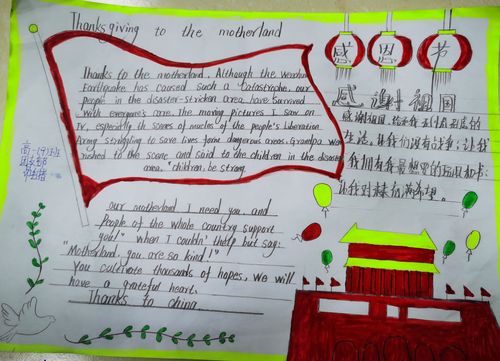 Thanksgiving to the motherland
Thanks to the motherland. Although the
Earthquake has caused such a catastrophe. our
people in the disaster-stricken area. have survived
with everyone's care. The moving pictures I saw on
TV, especially of the people's Liberation
Army struggling to save lives dangerous areas. Grandpa
to the scene and said to the children in the disaster
area, "children, be strong.
our motherland I need you. and
People of the whole country support
you!" when I couldn't help but say:
"Motherland, you are so kind!"
You cultivate thousands of hopes. We will
have a grateful heart.
Thanks to china
感恩节
感谢祖国
感谢祖国,
生活,让我们没有战争;让我
们拥有
让我对未来充满希望。
高一(9)班